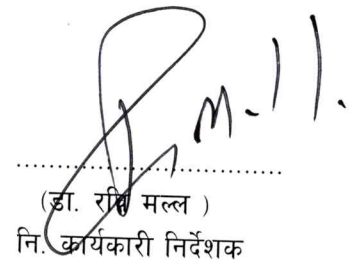 (डा. रवि मल्ल )
नि. कार्यकारी निर्देशक